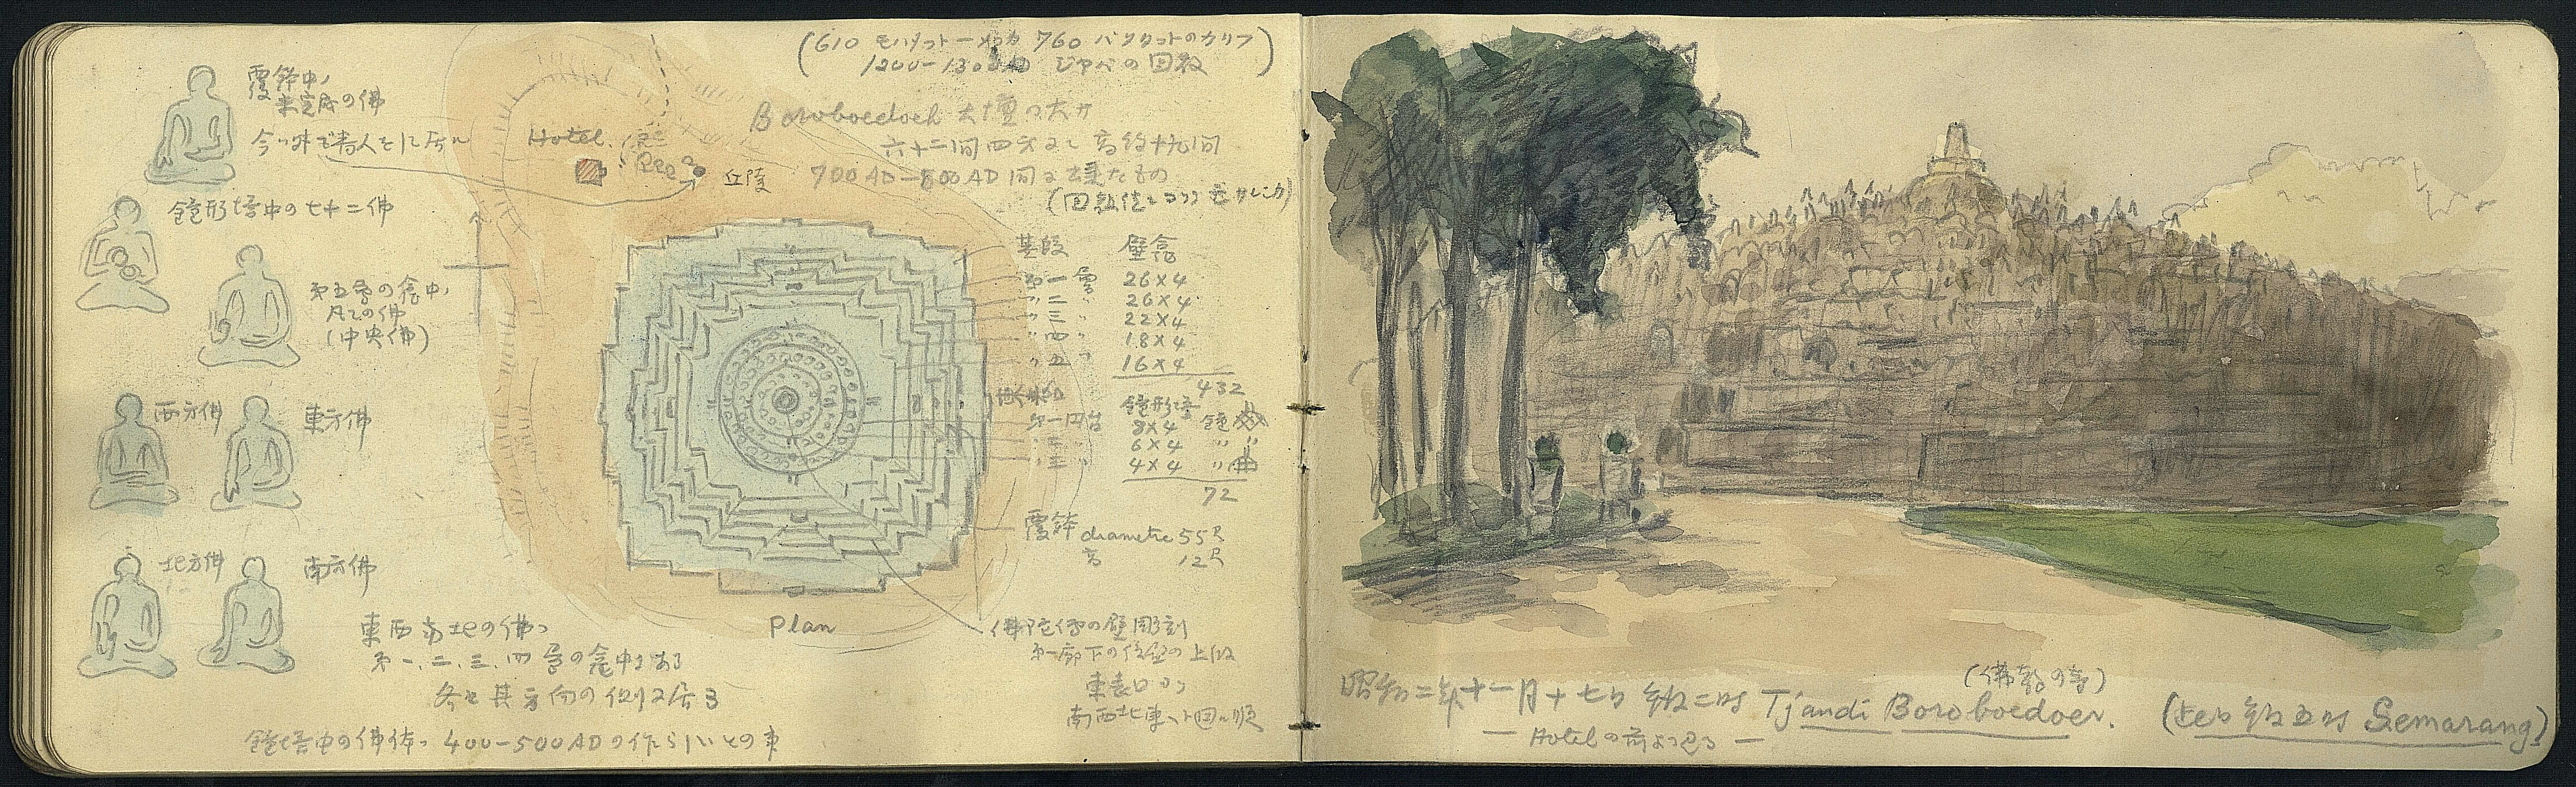 (610 モハメットーメッカ 760 バグダットのカリフ
1200-1300 回教)
覆鉢中
未完成の佛
今ハ外で
Hotel.
丘陵
Boroboedoer 大壇の大サ
六十二間四方にて高約十九間
700 AD-800 AD 間に建たもの
鐘形塔中の七十二佛
第五層の龕中
凡ての佛
(中央佛)
基段 壁龕
第一層 26×4
〃二〃 26×4
〃三〃 22×4
〃四〃 18×4
〃五〃 16×4
432
鐘形塔
第一円台 8×4
〃二〃 6×4
〃三〃 4×4
72
西方佛
東方佛
覆鉢 diametre 55尺
高 12尺
北方佛
南方佛
Plan
東西南北の佛ハ
第一、二、三、四層の龕中にある
各々其方向の側に居る
鐘塔中の佛体ハ 400-500 AD の作らしいとの事
佛陀傳の壁彫刻
第一廊下の 壁の上段
東表口ヨリ
南西北東ヘト回ル順
昭和二年十一月十七日 午後二時 Tjandi Boroboedoer.
(佛教の寺)
— Hotel の前より見る —
(午後五時 Semarang)